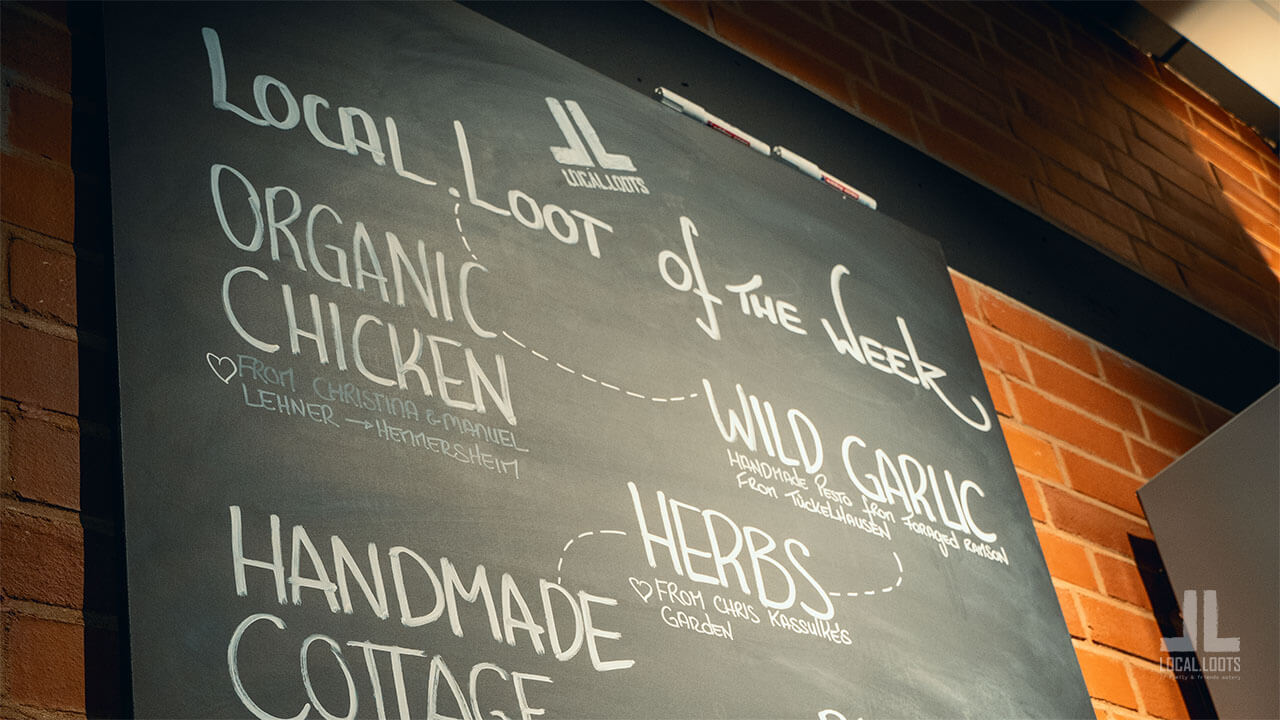 LOCAL.LOOT OF THE WEEK
LOCAL.LOOTS
ORGANIC
CHICKEN
FROM CHRISTINA & MANUEL
LEHNER → HEMMERSHEIM
WILD GARLIC
HANDMADE PESTO FROM FORAGED RAMSON
FROM TÜCKELHAUSEN
HERBS
FROM CHRIS KASSULKE'S
GARDEN
HANDMADE
COTTAGE
LOCAL.LOOTS
family & friends eatery